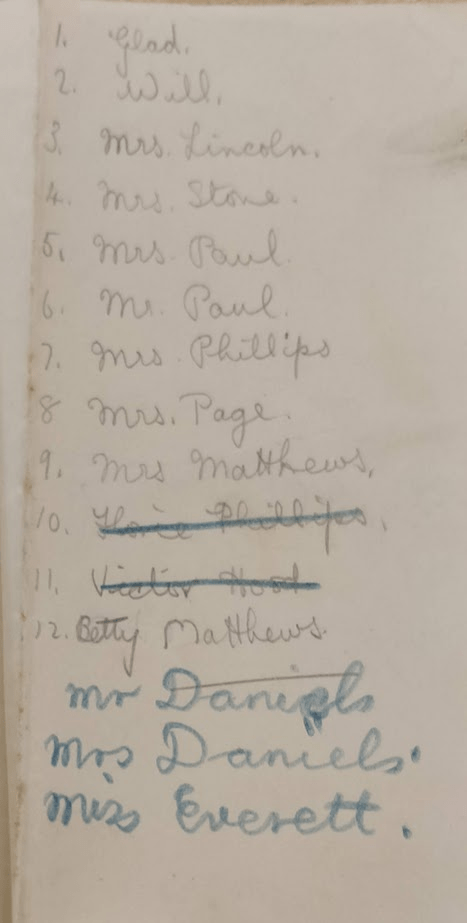 1. Glad.
2. Will.
3. Mrs. Lincoln.
4. Mrs. Stone.
5. Mrs. Paul.
6. Mr. Paul.
7. Mrs. Phillips
8 Mrs. Page.
9. Mrs Matthews.
10. Phillips.
11. Victor Hood
12. Betty Matthews.
Mr Daniels
Mrs Daniels.
Miss Everett.